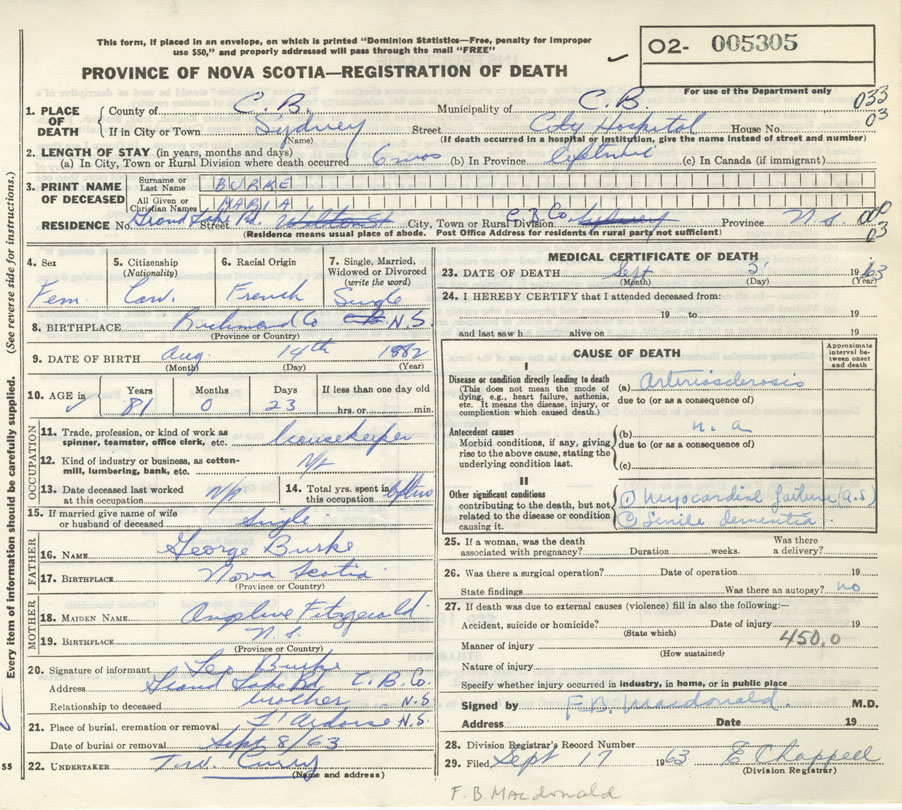 This form, if placed in an envelope, on which is printed "Dominion Statistics—Free, penalty for improper
use $50," and properly addressed will pass through the mail "FREE"
O2- 005305
PROVINCE OF NOVA SCOTIA—REGISTRATION OF DEATH
For use of the Department only
1. PLACE OF DEATH County of C.B. Municipality of C.B. 033
If in City or Town Sydney Street City Hospital House No. 03
(Name) (If death occurred in a hospital or institution, give the name instead of street and number)
2. LENGTH OF STAY (in years, months and days)
(a) In City, Town or Rural Division where death occurred 6 mos (b) In Province lifetime (c) In Canada (if immigrant)
3. PRINT NAME OF DECEASED Surname or Last Name BURKE
All Given or Christian Names MARIA
RESIDENCE No. Grand Lake Rd. Street City, Town or Rural Division C.B. Co. Sydney Province N.S. 03
(Residence means usual place of abode. Post Office Address for residents in rural parts not sufficient)
4. Sex Fem
5. Citizenship (Nationality) Can.
6. Racial Origin French
7. Single, Married, Widowed or Divorced (write the word) Single
8. BIRTHPLACE Richmond Co N.S.
(Province or Country)
9. DATE OF BIRTH Aug. 14th 1882
(Month) (Day) (Year)
10. AGE in Years Months Days If less than one day old
81 0 23 hrs. or min.
OCCUPATION
11. Trade, profession, or kind of work as spinner, teamster, office clerk, etc. housekeeper
12. Kind of industry or business, as cotton-mill, lumbering, bank, etc.
13. Date deceased last worked at this occupation
14. Total yrs. spent in this occupation
15. If married give name of wife or husband of deceased Single
FATHER
16. NAME George Burke
17. BIRTHPLACE Nova Scotia
(Province or Country)
MOTHER
18. MAIDEN NAME Angeline Fitzgerald
19. BIRTHPLACE N.S.
(Province or Country)
20. Signature of informant Leo Burke
Address Grand Lake Rd C.B. Co.
Relationship to deceased brother N.S.
21. Place of burial, cremation or removal L'Ardoise N.S.
Date of burial or removal Sept 8/63
22. UNDERTAKER T.W. Curry
(Name and address)
MEDICAL CERTIFICATE OF DEATH
23. DATE OF DEATH Sept 5 1963
(Month) (Day) (Year)
24. I HEREBY CERTIFY that I attended deceased from:
19 to 19
and last saw h alive on 19
CAUSE OF DEATH
Approximate interval between onset and death
I
Disease or condition directly leading to death
(This does not mean the mode of dying, e.g., heart failure, asthenia, etc. It means the disease, injury, or complication which caused death.)
(a) Arteriosclerosis
due to (or as a consequence of)
Antecedent causes
Morbid conditions, if any, giving rise to the above cause, stating the underlying condition last.
(b) n.a
due to (or as a consequence of)
(c)
II
Other significant conditions contributing to the death, but not related to the disease or condition causing it.
(1) Myocardial failure (a.s)
(2) Senile dementia.
25. If a woman, was the death associated with pregnancy? Duration weeks. Was there a delivery?
26. Was there a surgical operation? Date of operation 19
State findings Was there an autopsy? no
27. If death was due to external causes (violence) fill in also the following:—
Accident, suicide or homicide? Date of injury 19
(State which)
Manner of injury 450,0
(How sustained)
Nature of injury
Specify whether injury occurred in industry, in home, or in public place
Signed by F.B. Macdonald. M.D.
Address Date 19
28. Division Registrar's Record Number
29. Filed Sept 17 1963 E Chappell
(Division Registrar)
F. B. Macdonald
(See reverse side for instructions.)
Every item of information should be carefully supplied.
55